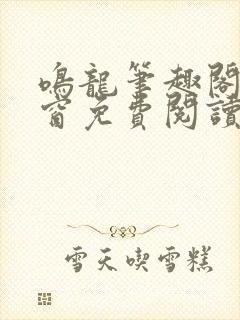 鳴龍筆趣閣
窗免費閱讀
雪天喫雪糕